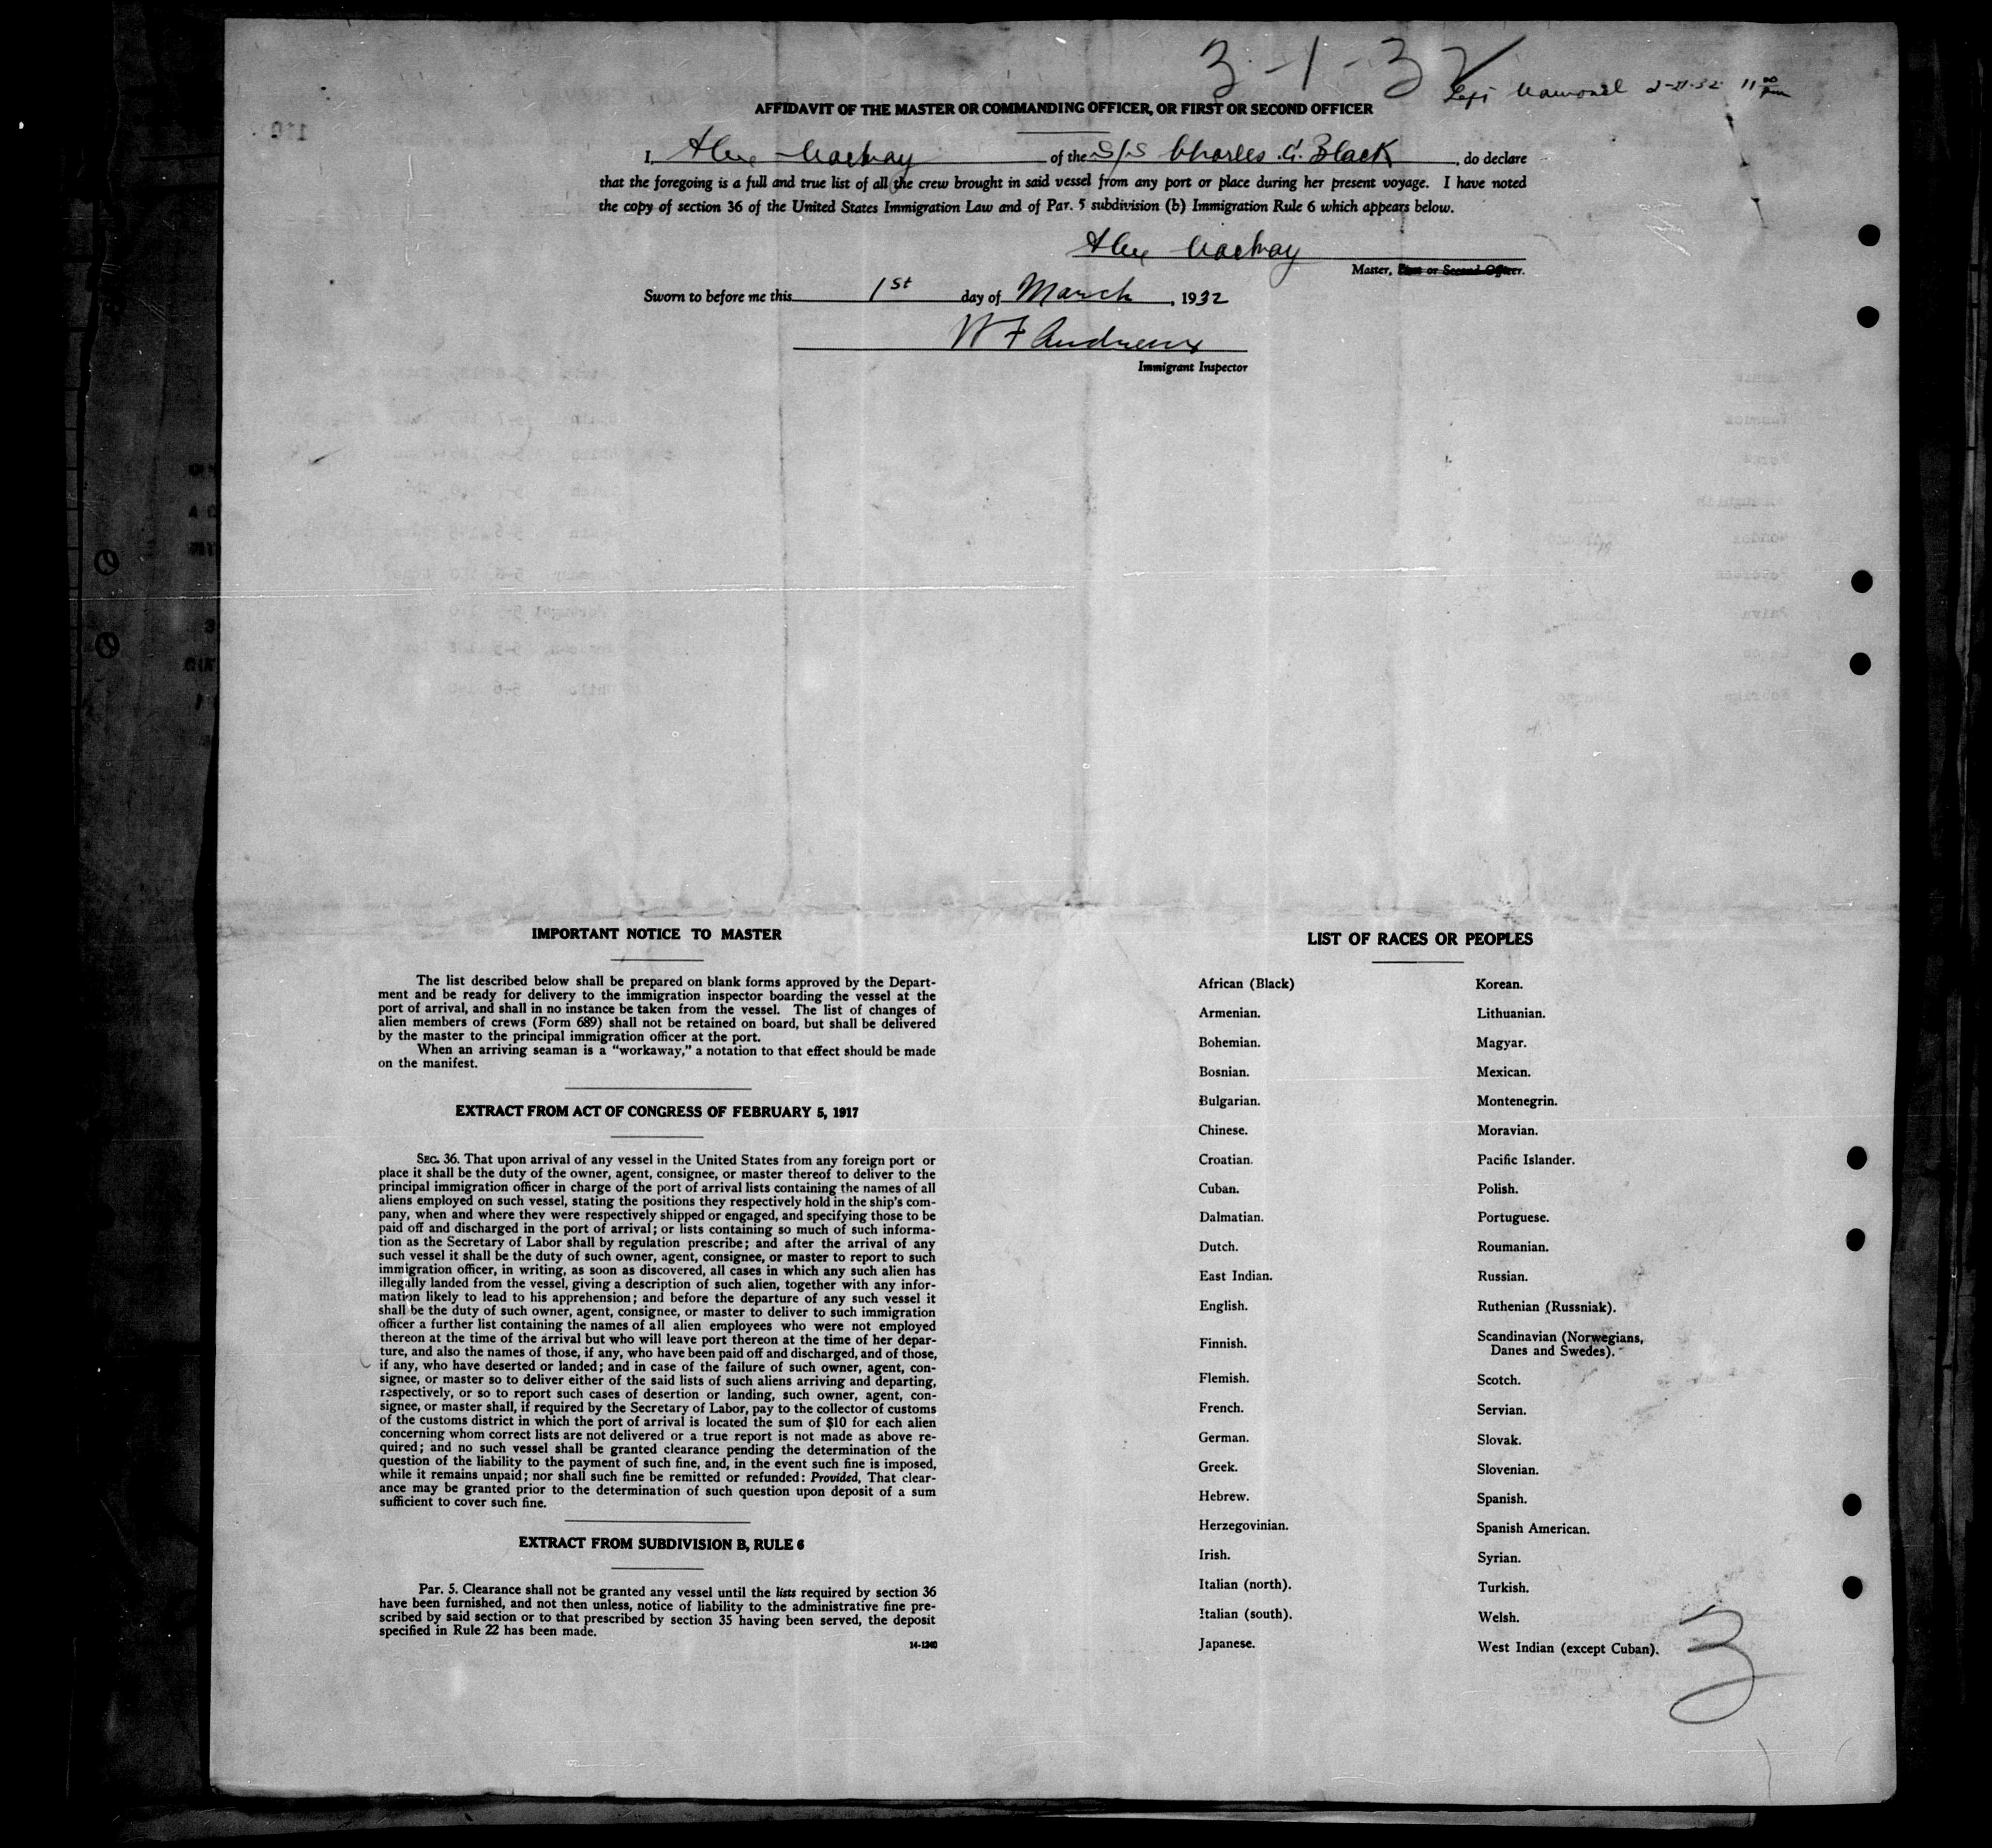 3-1-32
2-21-32 11 00 pm
AFFIDAVIT OF THE MASTER OR COMMANDING OFFICER, OR FIRST OR SECOND OFFICER
I, Alex Mackay of the S/S Charles G. Black, do declare
that the foregoing is a full and true list of all the crew brought in said vessel from any port or place during her present voyage. I have noted
the copy of section 36 of the United States Immigration Law and of Par. 5 subdivision (b) Immigration Rule 6 which appears below.
Alex Mackay
Master, First or Second Officer.
Sworn to before me this 1st day of March, 1932
W F Andrews
Immigrant Inspector
IMPORTANT NOTICE TO MASTER
The list described below shall be prepared on blank forms approved by the Depart-
ment and be ready for delivery to the immigration inspector boarding the vessel at the
port of arrival, and shall in no instance be taken from the vessel. The list of changes of
alien members of crews (Form 689) shall not be retained on board, but shall be delivered
by the master to the principal immigration officer at the port.
When an arriving seaman is a "workaway," a notation to that effect should be made
on the manifest.
EXTRACT FROM ACT OF CONGRESS OF FEBRUARY 5, 1917
SEC. 36. That upon arrival of any vessel in the United States from any foreign port or
place it shall be the duty of the owner, agent, consignee, or master thereof to deliver to the
principal immigration officer in charge of the port of arrival lists containing the names of all
aliens employed on such vessel, stating the positions they respectively hold in the ship's com-
pany, when and where they were respectively shipped or engaged, and specifying those to be
paid off and discharged in the port of arrival; or lists containing so much of such informa-
tion as the Secretary of Labor shall by regulation prescribe; and after the arrival of any
such vessel it shall be the duty of such owner, agent, consignee, or master to report to such
immigration officer, in writing, as soon as discovered, all cases in which any such alien has
illegally landed from the vessel, giving a description of such alien, together with any infor-
mation likely to lead to his apprehension; and before the departure of any such vessel it
shall be the duty of such owner, agent, consignee, or master to deliver to such immigration
officer a further list containing the names of all alien employees who were not employed
thereon at the time of the arrival but who will leave port thereon at the time of her depar-
ture, and also the names of those, if any, who have been paid off and discharged, and of those,
if any, who have deserted or landed; and in case of the failure of such owner, agent, con-
signee, or master so to deliver either of the said lists of such aliens arriving and departing,
respectively, or so to report such cases of desertion or landing, such owner, agent, con-
signee, or master shall, if required by the Secretary of Labor, pay to the collector of customs
of the customs district in which the port of arrival is located the sum of $10 for each alien
concerning whom correct lists are not delivered or a true report is not made as above re-
quired; and no such vessel shall be granted clearance pending the determination of the
question of the liability to the payment of such fine, and, in the event such fine is imposed,
while it remains unpaid; nor shall such fine be remitted or refunded: Provided, That clear-
ance may be granted prior to the determination of such question upon deposit of a sum
sufficient to cover such fine.
EXTRACT FROM SUBDIVISION B, RULE 6
Par. 5. Clearance shall not be granted any vessel until the lists required by section 36
have been furnished, and not then unless, notice of liability to the administrative fine pre-
scribed by said section or to that prescribed by section 35 having been served, the deposit
specified in Rule 22 has been made.
14-1240
LIST OF RACES OR PEOPLES
African (Black)
Armenian.
Bohemian.
Bosnian.
Bulgarian.
Chinese.
Croatian.
Cuban.
Dalmatian.
Dutch.
East Indian.
English.
Finnish.
Flemish.
French.
German.
Greek.
Hebrew.
Herzegovinian.
Irish.
Italian (north).
Italian (south).
Japanese.
Korean.
Lithuanian.
Magyar.
Mexican.
Montenegrin.
Moravian.
Pacific Islander.
Polish.
Portuguese.
Roumanian.
Russian.
Ruthenian (Russniak).
Scandinavian (Norwegians,
Danes and Swedes).
Scotch.
Servian.
Slovak.
Slovenian.
Spanish.
Spanish American.
Syrian.
Turkish.
Welsh.
West Indian (except Cuban).
3